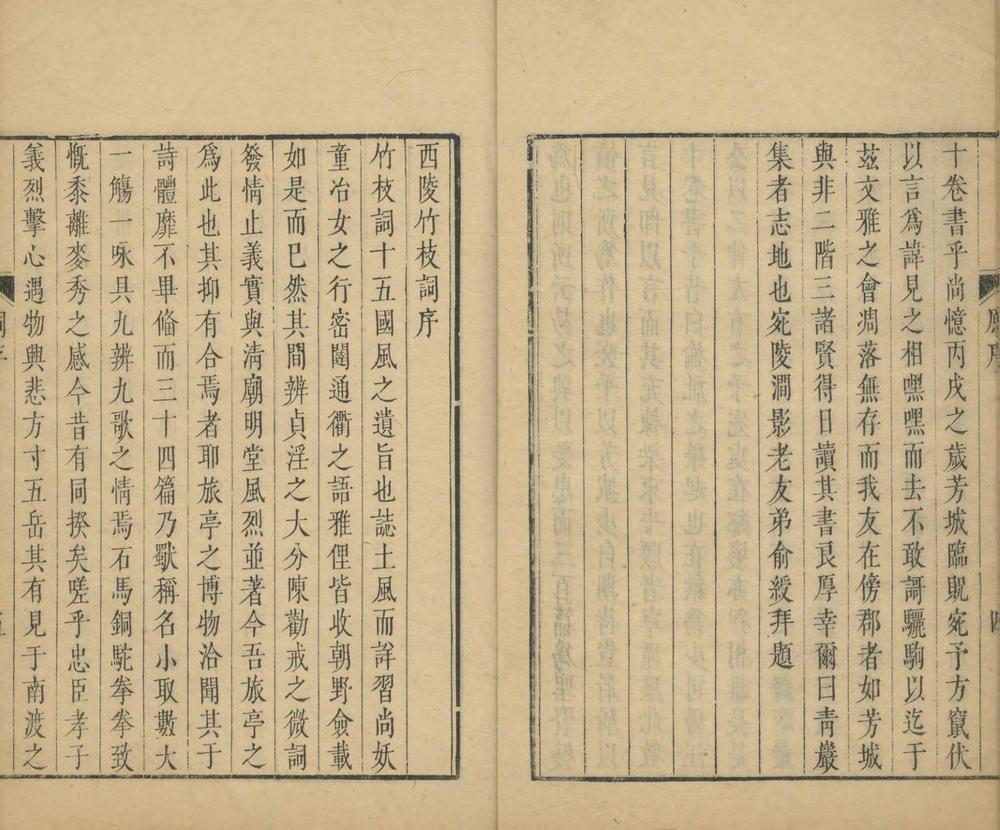 十卷書乎尚憶丙戌之歲芳城臨貺宛予方竄伏
以言爲諱見之相嘿嘿而去不敢謌驪駒以迄于
茲文雅之會凋落無存而我友在傍郡者如芳城
與非二階三諸賢得日讀其書良厚幸爾曰青巖
集者志地也宛陵澗影老友弟俞綬拜題
四
西陵竹枝詞序
竹枝詞十五國風之遺旨也誌土風而詳習尚妖
童冶女之行密闥通衢之語雅俚皆收朝野僉載
如是而已然其間辨貞淫之大分陳勸戒之微詞
發情止義實與淸廟明堂風烈並著今吾旅亭之
爲此也其抑有合焉者耶旅亭之博物洽聞其于
詩體靡不畢偹而三十四篇乃歜稱名小取數大
一觴一咏具九辨九歌之情焉石馬銅駝拳拳致
慨黍離麥秀之感今昔有同揆矣嗟乎忠臣孝子
義烈擊心遇物興悲方寸五岳其有見于南渡之